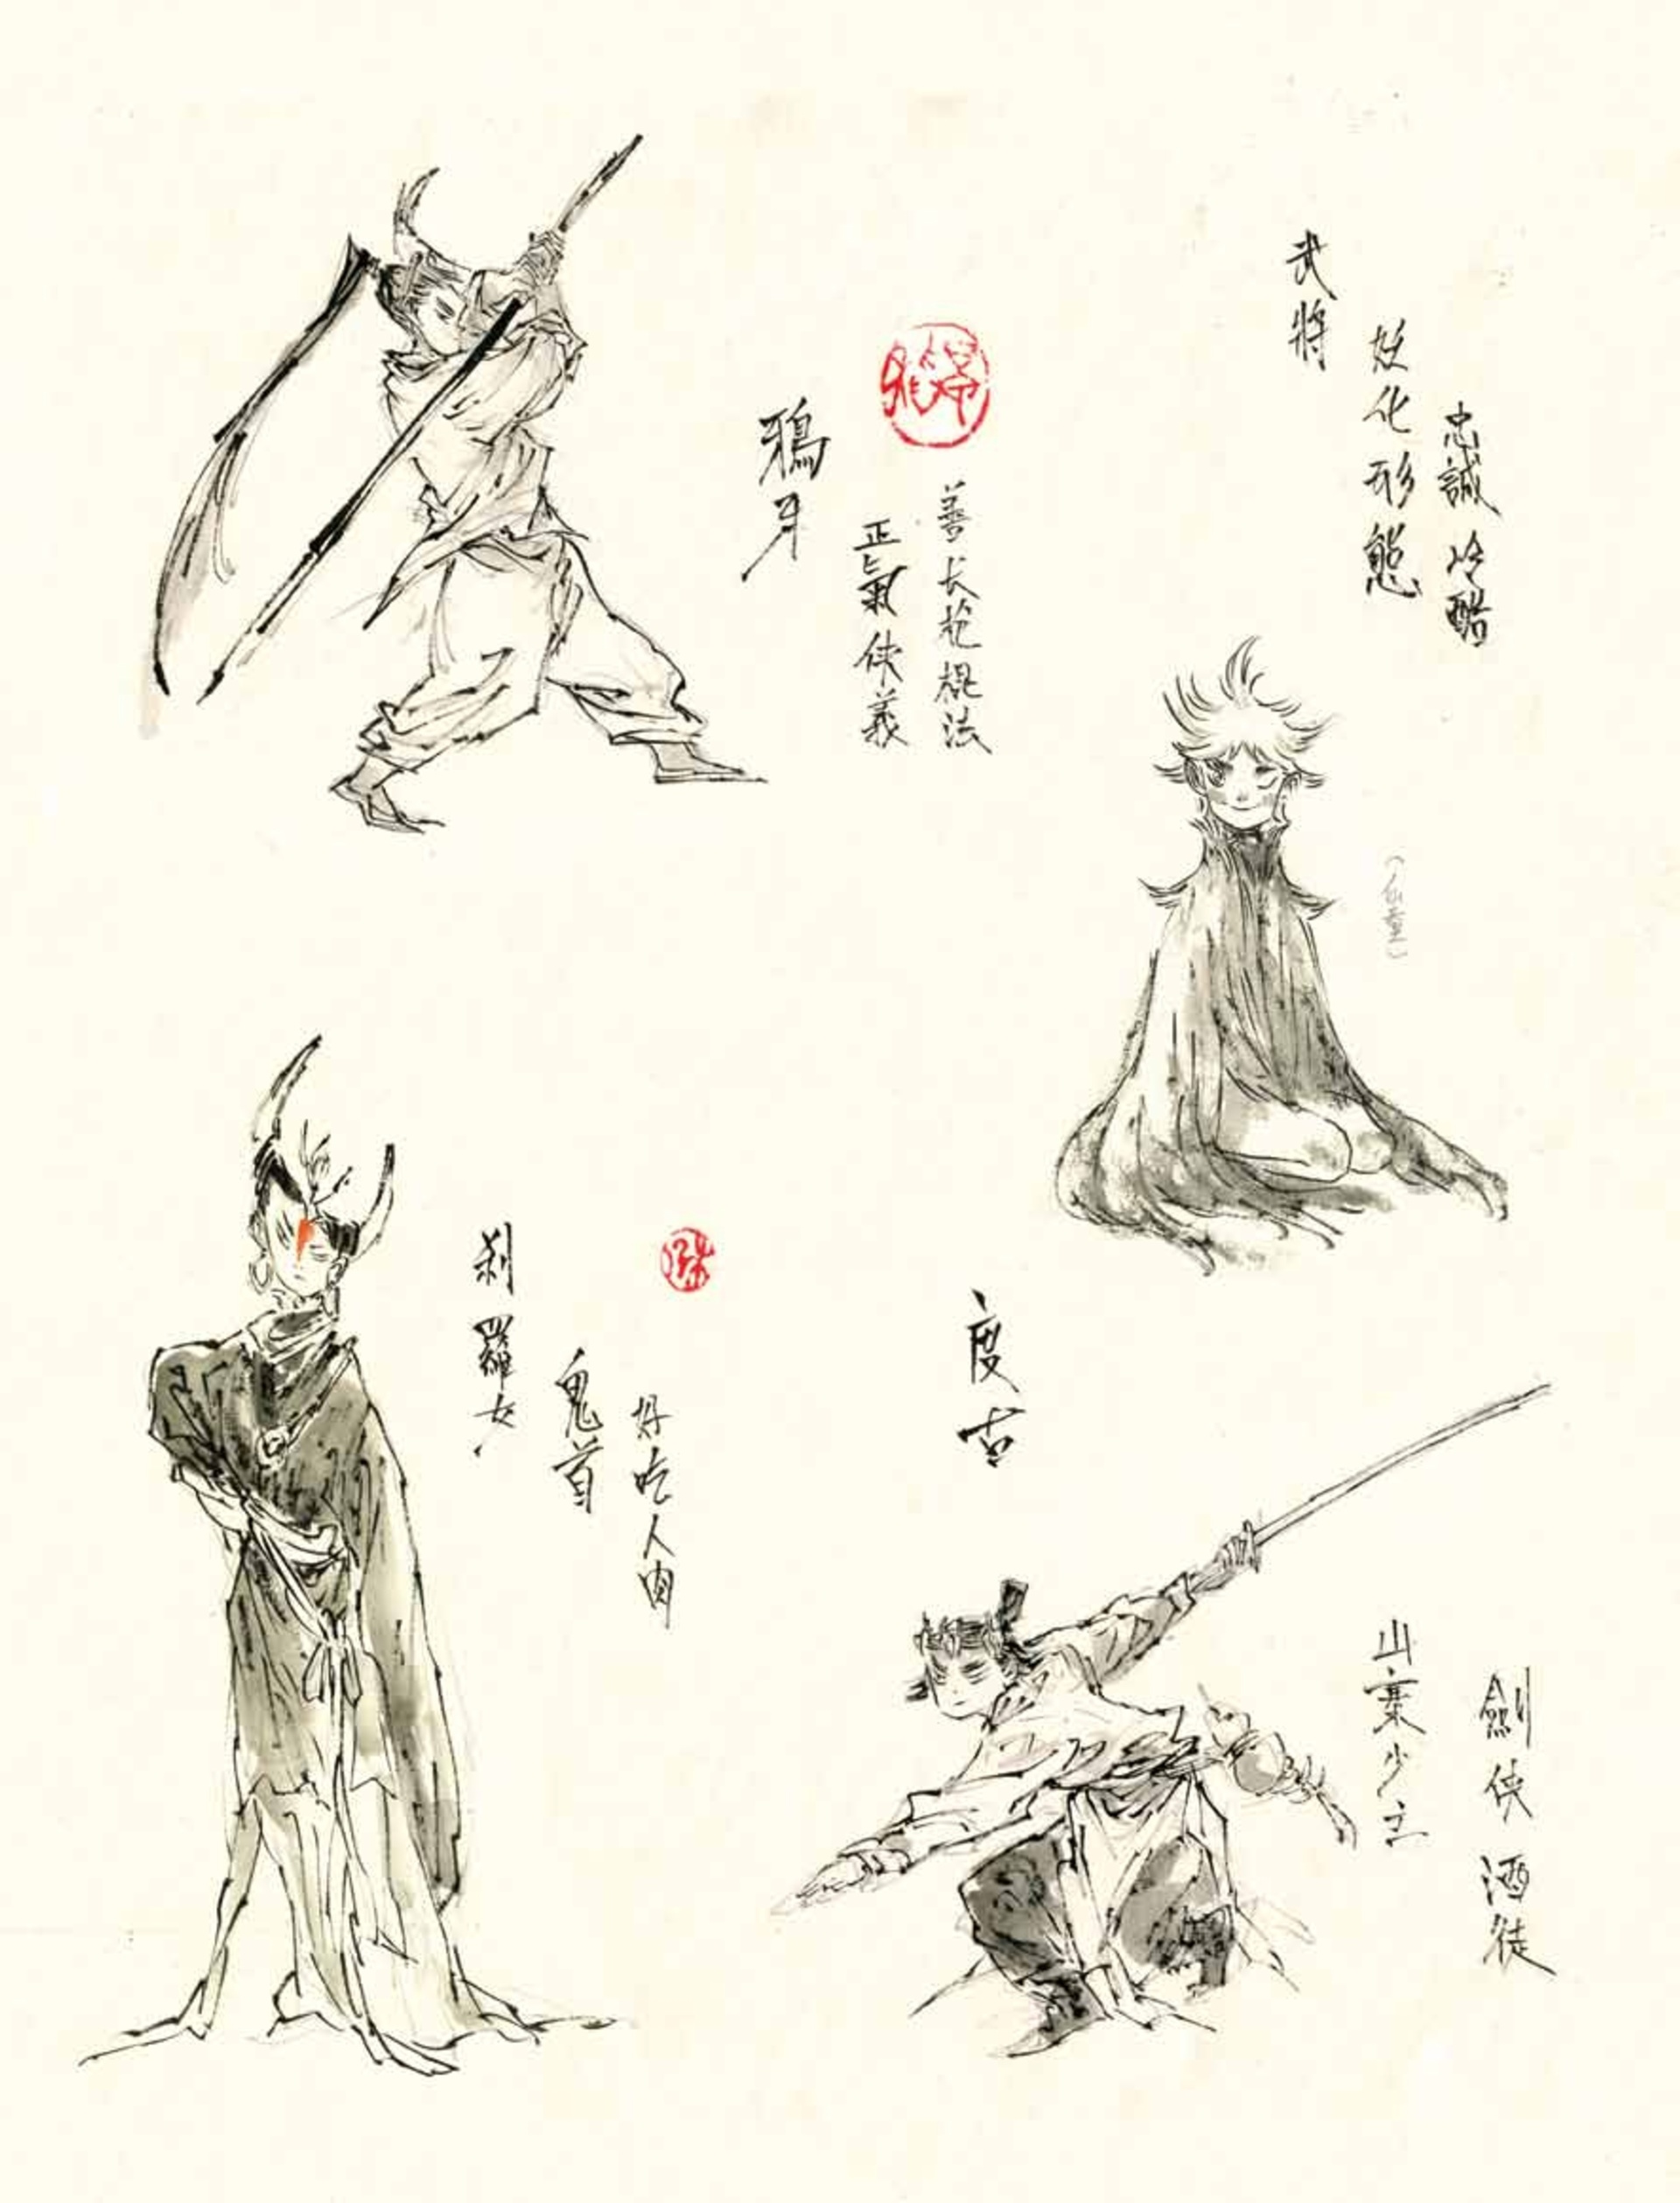 鴉牙
善长枪棍法
正氣俠義
武將
妖化形態
忠誠 冷酷
(仙童)
刹羅女
鬼首
好吃人肉
度古
山寨少主
劍俠 酒徒